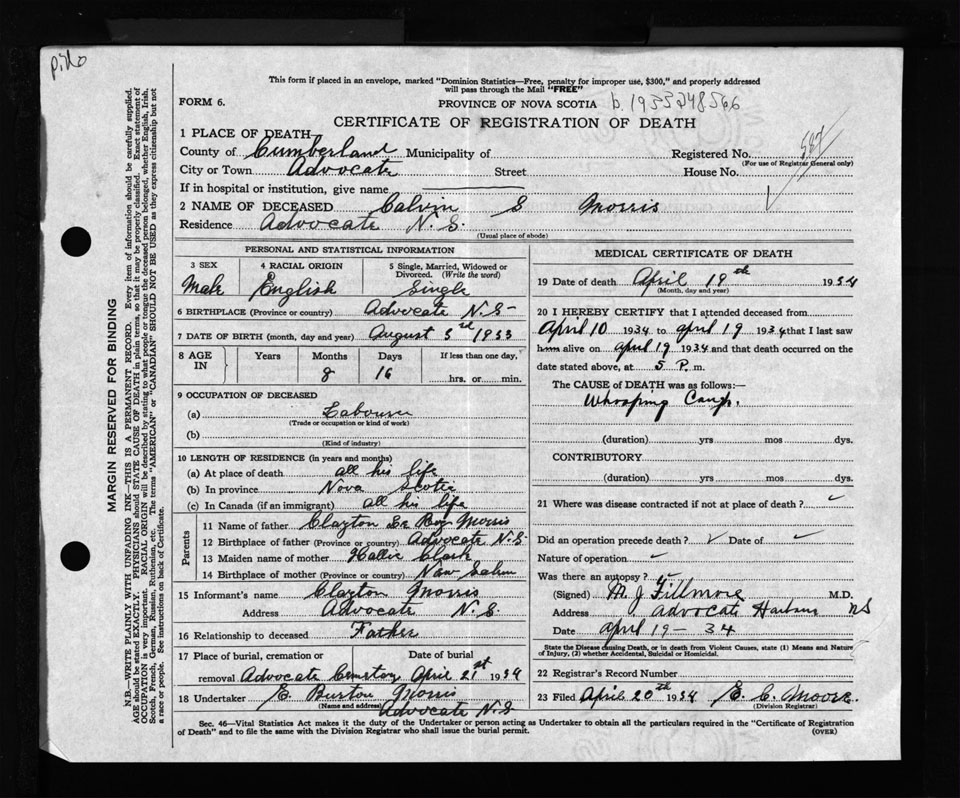 This form if placed in an envelope, marked "Dominion Statistics—Free, penalty for improper use, $300," and properly addressed
will pass through the Mail "FREE"
FORM 6. PROVINCE OF NOVA SCOTIA b. 1933248566
CERTIFICATE OF REGISTRATION OF DEATH
1 PLACE OF DEATH
County of Cumberland Municipality of Registered No. 587
(For use of Registrar General only)
City or Town Advocate Street House No.
If in hospital or institution, give name
2 NAME OF DECEASED Calvin S Morris
Residence Advocate N.S.
(Usual place of abode)
PERSONAL AND STATISTICAL INFORMATION
3 SEX 4 RACIAL ORIGIN 5 Single, Married, Widowed or Divorced. (Write the word)
Male English Single
6 BIRTHPLACE (Province or country) Advocate N.S
7 DATE OF BIRTH (month, day and year) August 3rd 1933
8 AGE IN Years Months Days If less than one day,
8 16 hrs. or min.
9 OCCUPATION OF DECEASED
(a) Labourer
(Trade or occupation or kind of work)
(b)
(Kind of industry)
10 LENGTH OF RESIDENCE (in years and months)
(a) At place of death all his life
(b) In province Nova Scotia
(c) In Canada (if an immigrant) all his life
Parents
11 Name of father Clayton Le Roy Morris
12 Birthplace of father (Province or country) Advocate N.S.
13 Maiden name of mother Hallie Clark
14 Birthplace of mother (Province or country) New Salem
15 Informant's name Clayton Morris
Address Advocate N.S.
16 Relationship to deceased Father
17 Place of burial, cremation or removal Date of burial
Advocate Cemetery April 21st 1934
18 Undertaker E. Burton Morris
(Name and address) Advocate N.S
MEDICAL CERTIFICATE OF DEATH
19 Date of death April 19th 1934
(Month, day and year)
20 I HEREBY CERTIFY that I attended deceased from
April 10 1934 to April 19 1934 that I last saw
him alive on April 19 1934 and that death occurred on the
date stated above, at 5 P. m.
The CAUSE of DEATH was as follows:—
Whooping Cough.
(duration) yrs mos dys.
CONTRIBUTORY
(duration) yrs mos dys.
21 Where was disease contracted if not at place of death?
Did an operation precede death? Date of
Nature of operation
Was there an autopsy?
(Signed) M. J Fillmore M.D.
Address Advocate Harbour NS
Date April 19 - 34
State the Disease causing Death, or in death from Violent Causes, state (1) Means and Nature of Injury, (2) whether Accidental, Suicidal or Homicidal.
22 Registrar's Record Number
23 Filed April 20th 1934 E. C. Moore
(Division Registrar)
Sec. 46—Vital Statistics Act makes it the duty of the Undertaker or person acting as Undertaker to obtain all the particulars required in the "Certificate of Registration
of Death" and to file the same with the Division Registrar who shall issue the burial permit. (OVER)
MARGIN RESERVED FOR BINDING
N.B.—WRITE PLAINLY WITH UNFADING INK—THIS IS A PERMANENT RECORD. Every item of information should be carefully supplied.
AGE should be stated EXACTLY. PHYSICIANS should STATE CAUSE OF DEATH in plain terms, so that it may be properly classified. Exact statement of
OCCUPATION is very important. RACIAL ORIGIN will be described by stating to what people or tongue the deceased person belonged, whether English, Irish,
Scotch, French, German, Russian, Ruthenian, etc. The terms "AMERICAN" or "CANADIAN" SHOULD NOT BE USED as they express citizenship but not
a race or people. See instructions on back of Certificate.